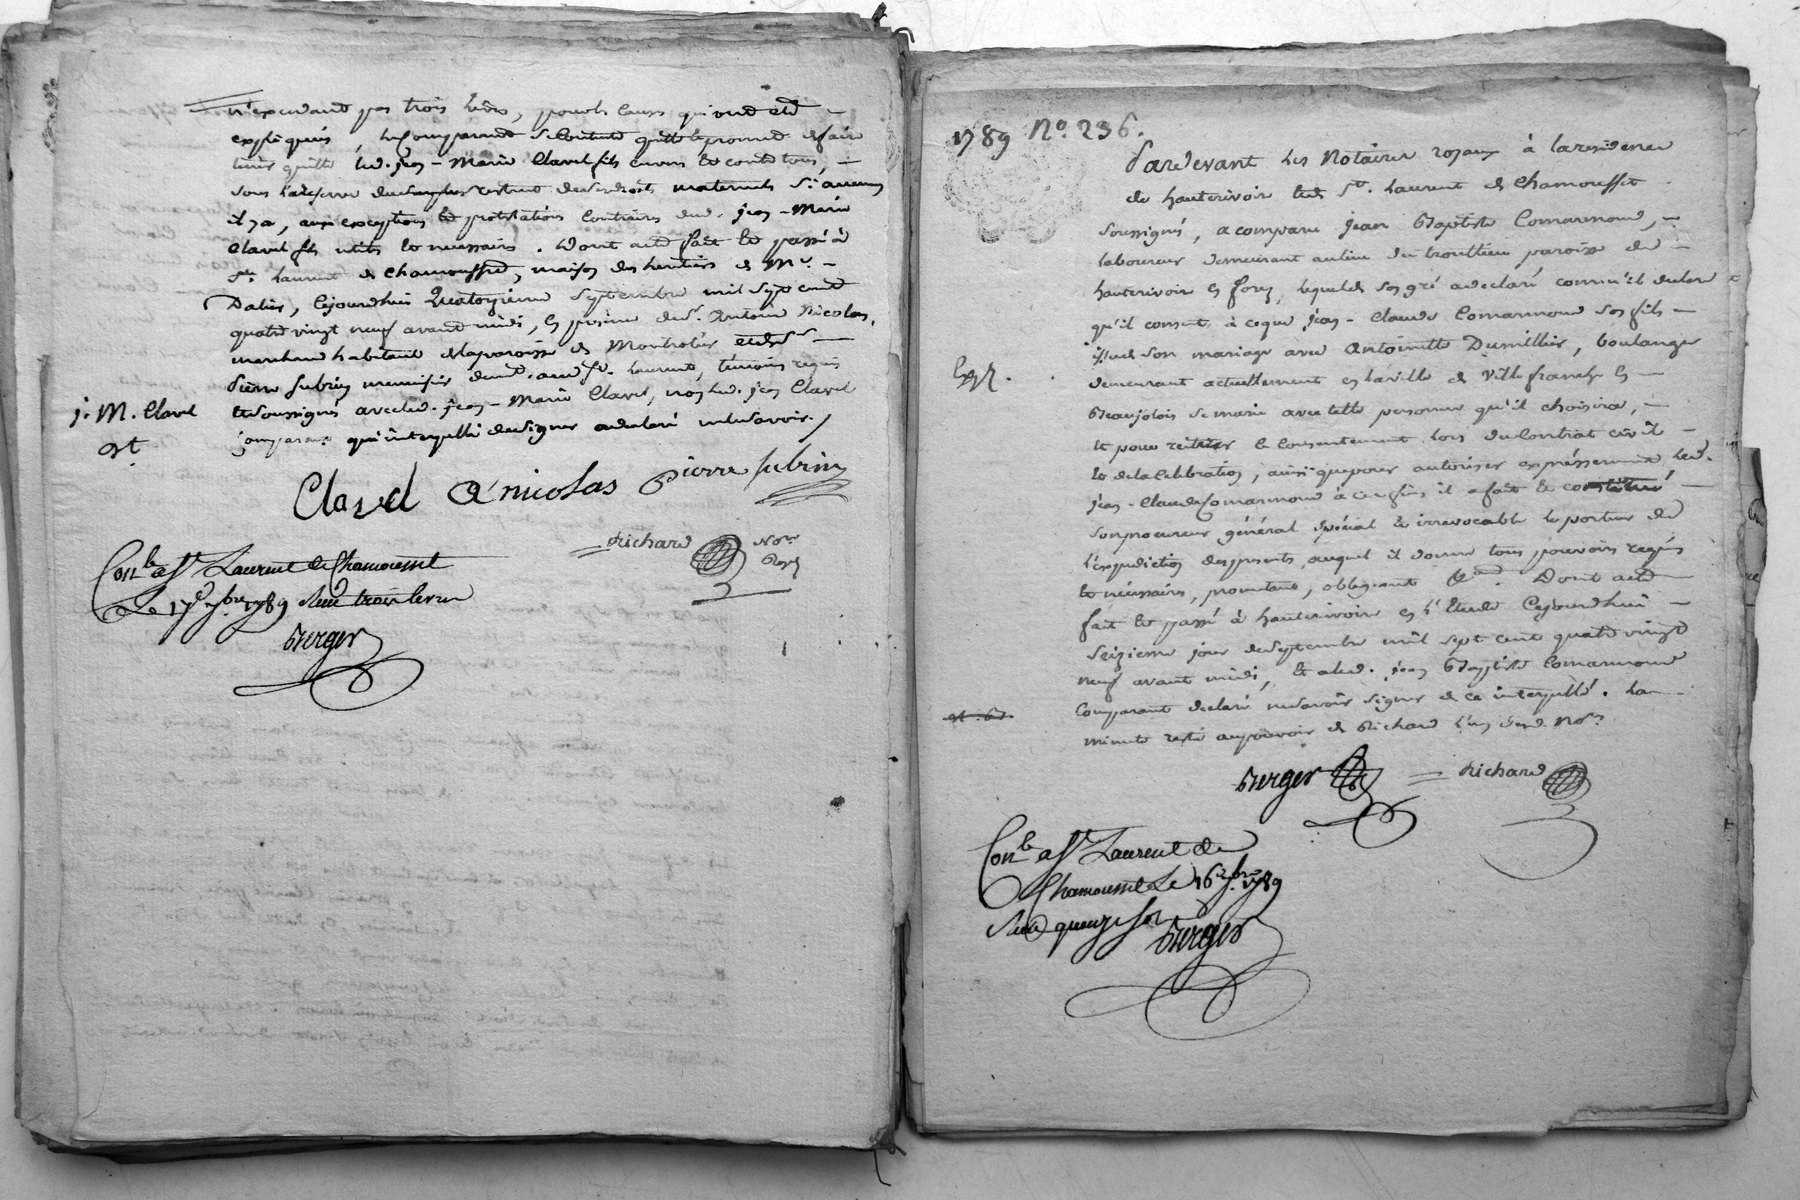 n'excedant pas trois livres, pour les causes qui ont été
expliquées, le comparant se contente quitte et promet de faire
tenir quitte led. jean-Marie Clavel fils envers et contre tous,
sous la reserve du surplus restant de ses droits maternels s'il aucuns
il y a, aux exceptions et protestations contraires dud. jean-Marie
Clavel fils utiles et necessaires. Dont acte fait et passé à
St. Laurent de Chamousset, maison des heritiers de Mr.
Dalier, cejourdhui Quatorzieme Septembre mil sept cent
quatre vingt neuf avant midi, en presence de sr. Antoine Nicolas,
marchand habitant de la paroisse de Montrotier et de sr.
Pierre Subrin menuisier demt. aud. St. Laurent, temoins requis
et soussignés avec led. jean-Marie Clavel, non led. jean Clavel
comparant qui interpellé de signer a declaré ne le savoir.
j. M. Clavel
Clavel A nicolas pierre subrin
Richard Nore
Royl
Conlé a St Laurent de Chamousset
Le 17e 7bre 1789 Reçu trois livres
Berger
1789 No. 236.
Pardevant les Notaires royaux à la residence
de hauterivoir et de St. Laurent de Chamousset
soussignés, a comparu jean Baptiste Comarmond,
laboureur demeurant au lieu du trouillieu paroisse de
hauterivoir en forez, lequel de son gré a declaré comm'il declare
qu'il consent à ce que jean-Claude Comarmond son fils
issu de son mariage avec Antoinette Dumillier, boulanger
demeurant actuellement en la ville de Villefranche en
Beaujolois se marie avec telle personne qu'il choisira,
et pour réiterer le consentement lors du Contrat civil
et de la celebration, ainsi que pour autoriser expressement led.
jean-Claude Comarmond à ces fins il a fait et constitué
son procureur général special et irrevocable le porteur de
l'expedition des presents, auquel il donne tous pouvoirs requis
et necessaires, promettant, obligeant &a. Dont acte
fait et passé à hauterivoir en l'Etude Cejourdhui
seizieme jour de Septembre mil sept cent quatre vingt
neuf avant midi, et a led. jean Baptiste Comarmond
comparant declaré ne savoir signer de ce interpellé. La
minute restée au pouvoir de Richard l'un desd. Nores
Exp.
Berger Richard
Conlé a St Laurent de
Chamousset Le 16 7bre 1789
Reçu quinze sols
Berger